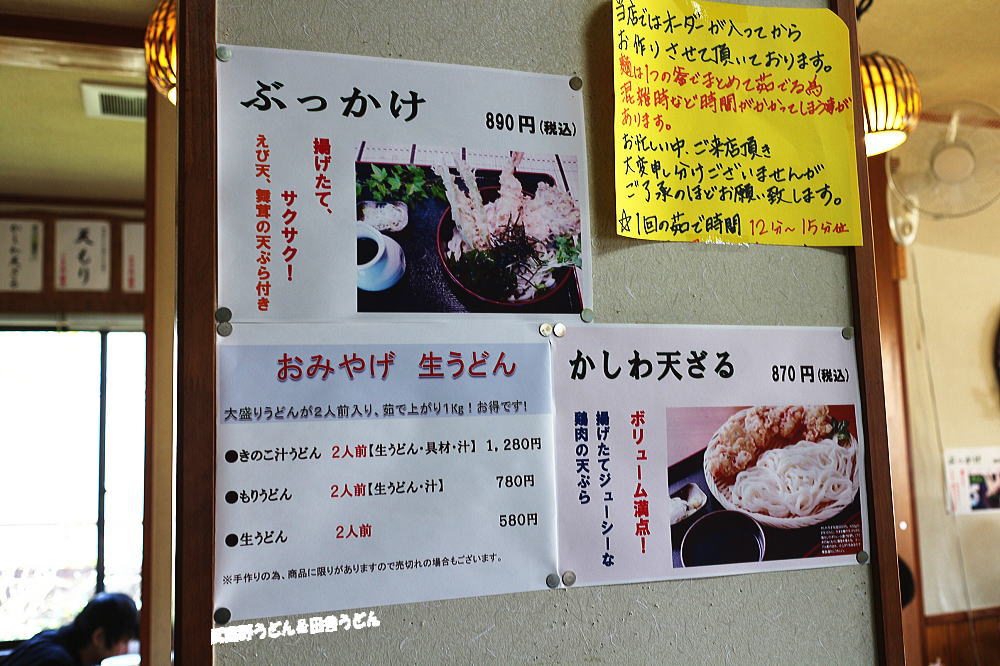 ぶっかけ
890円(税込)
揚げたて、
サクサク！
えび天、舞茸の天ぷら付き
当店ではオーダーが入ってから
お作りさせて頂いております。
麺は1つの釜でまとめて茹でる為
混雑時など時間がかかってしまう事が
あります。
お忙しい中、ご来店頂き
大変申し分けございませんが
ご了承のほどお願い致します。
☆1回の茹で時間 12分～15分位
おみやげ 生うどん
大盛りうどんが2人前入り、茹で上がり1Kg！お得です!
●きのこ汁うどん 2人前【生うどん・具材・汁】 1,280円
●もりうどん 2人前【生うどん・汁】 780円
●生うどん 2人前 580円
※手作りの為、商品に限りがありますので売切れの場合もございます。
かしわ天ざる
870円(税込)
ボリューム満点！
揚げたてジューシーな
鶏肉の天ぷら
天もり
うどん&田舎うどん